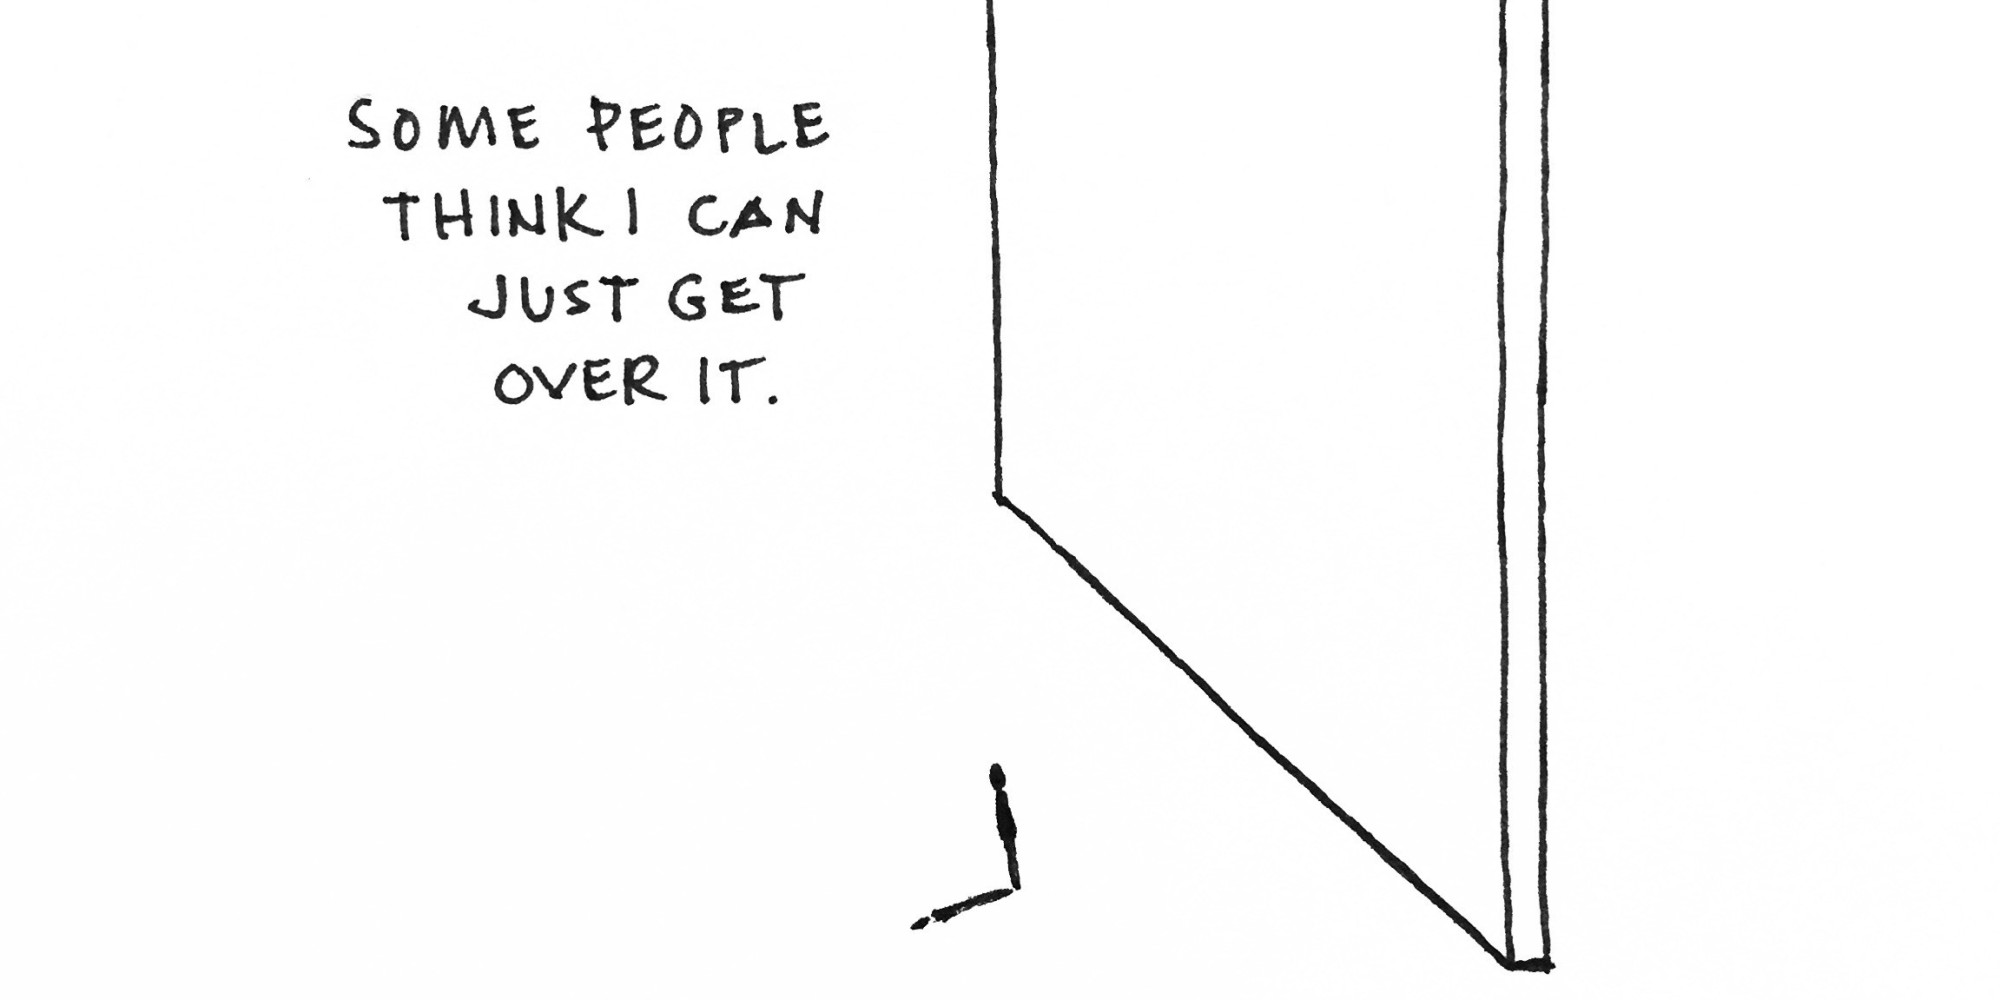 SOME PEOPLE
THINK I CAN
JUST GET
OVER IT.